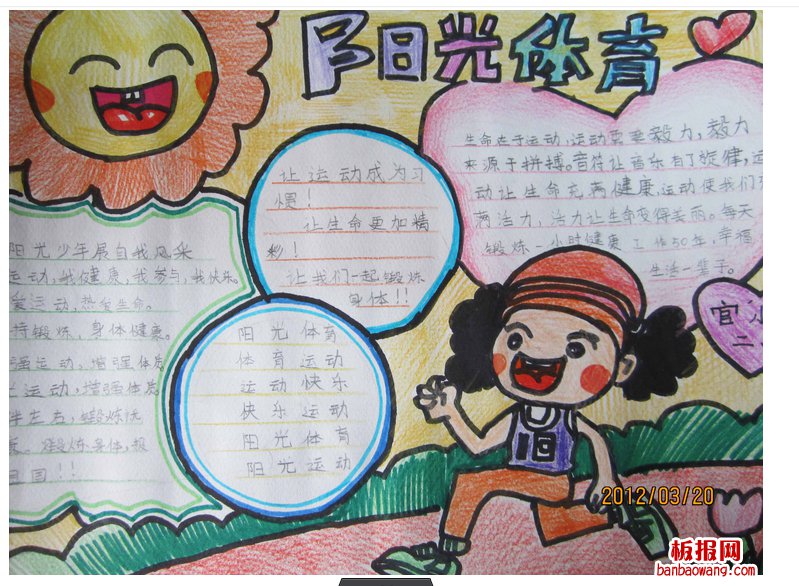 阳光体育
生命在于运动,运动需要毅力,毅力
来源于拼搏。音符让音乐有了旋律,运
动让生命充满健康,运动使我们
满活力,活力让生命变得美丽。每天
锻炼一小时健康工作50年,幸福
生活一辈子。
让运动成为习
惯!
让生命更加精
彩!
让我们一起锻炼
身体!!
阳光少年展自我风采
运动,我健康,我参与,我快乐。
爱运动,热爱生命。
持锻炼,身体健康。
强运动,增强体质
运动,增强体质
左右,锻炼优
锻炼身体,报
国!!
阳光体育
体育运动
运动快乐
快乐运动
阳光体育
阳光运动
宜
二
10
2012/03/20
板报网
banbaowang.com